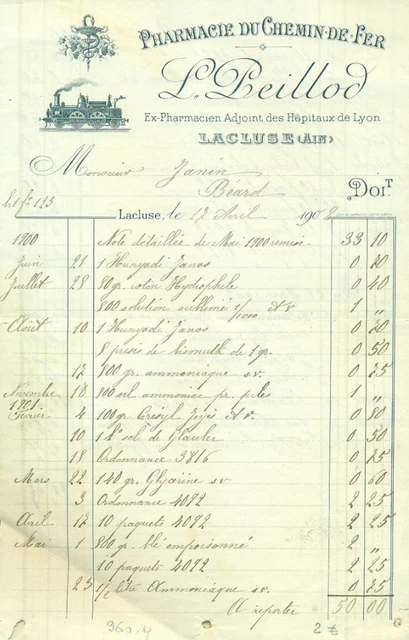 PHARMACIE DU CHEMIN-DE-FER
L. Peillod
Ex-Pharmacien Adjoint des Hôpitaux de Lyon
LACLUSE (AIN)
Monsieur Janin
Béard
DoiT
Lacluse, le 17 Avril 1902
1900 Note détaillée de Mai 1900 remise 33 10
Juin 21 1 Hunyadi Janos 0 70
Juillet 28 80 gr. coton Hydrophile 0 40
800 solution sublimé 1/1000 1 „
Août 10 1 Hunyadi Janos 0 70
8 prises de bismuth de 1 gr. 0 50
17 800 gr. ammoniaque s.v. 0 75
Novembre 18 800 1 „
1901
Février 4 100 gr. Crésyl 0 80
10 1 k sel de Glauber 0 50
18 Ordonnance 3816 0 75
Mars 22 140 gr. Glycérine s.v. 0 60
3 Ordonnance 4092 2 25
Avril 17 10 paquets 4092 2 25
Mai 1 800 gr. blé empoisonné 2 „
10 paquets 4092 2 25
23 1/2 litre Ammoniaque s.v. 0 75
A reporter 50 00
960.4 2 €